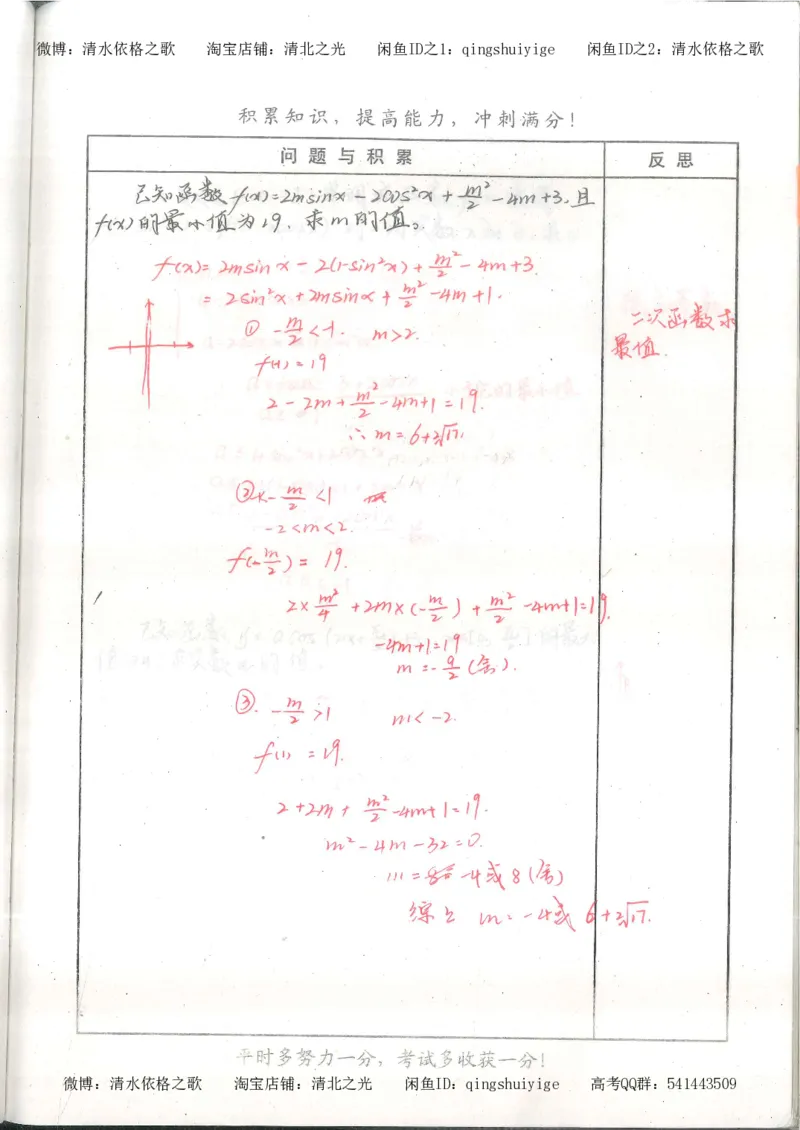 微博：清水依格之歌 淘宝店铺：清北之光 闲鱼ID之1：qingshuiyige 闲鱼ID之2：清水依格之歌
积累知识，提高能力，冲刺满分！
问题与积累 反思
已知函数f(x)=2msinx-2cos²x+m²/2-4m+3,且
f(x)的最小值为19,求m的值。
f(x)=2msinx-2(1-sin²x)+m²/2-4m+3.
=2sin²x+2msinx+m²/2-4m+1.
① -m/2<-1. m>2.
二次函数求
最值.
f(-1)=19
2-2m+m²/2-4m+1=19.
∴m=6+2√17.
②-1<-m/2<1
-2<m<2.
f(-m/2)=19.
2×m²/4+2m×(-m/2)+m²/2-4m+1=19.
-4m+1=19
m=-9/2(舍).
③. -m/2>1 m<-2.
f(1)=19.
2+2m+m²/2-4m+1=19.
m²-4m-32=0.
m=-4或8(舍)
综上 m=-4或6+2√17.
平时多努力一分，考试多收获一分！
微博：清水依格之歌 淘宝店铺：清北之光 闲鱼ID：qingshuiyige 高考QQ群：541443509